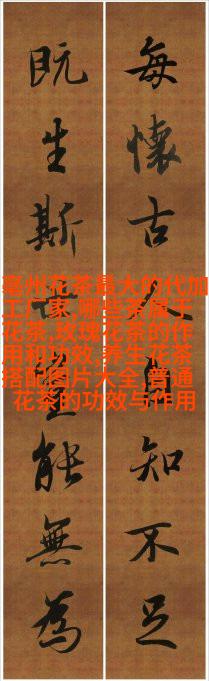 每懷古人自知不足
既生斯世能無為
亳州花茶最大的代加
工厂家,哪些茶属于
花茶,玫瑰花茶的作
用和功效,养生花茶
搭配图片大全,普通
花茶的功效与作用